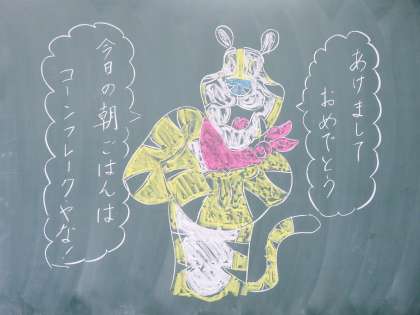 あけまして
おめでとう
今日の朝ごはんは
コーンフレークやな!